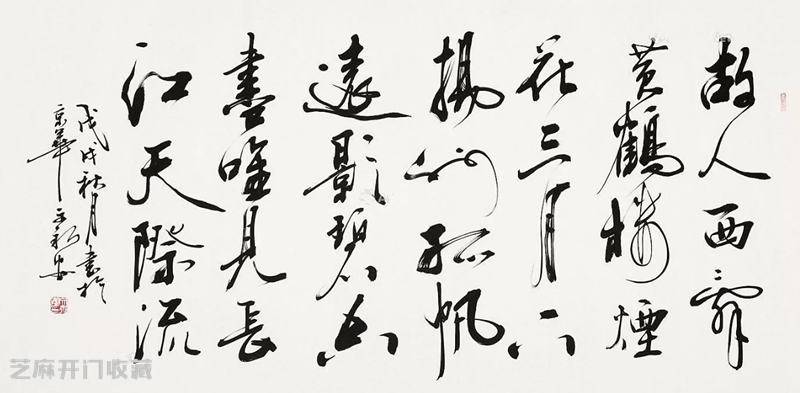 故人西辭
黄鶴樓煙
花三月下
揚州孤帆
遠影碧空
盡唯見長
江天際流
戊戌秋月書於
京華
芝麻开门收藏